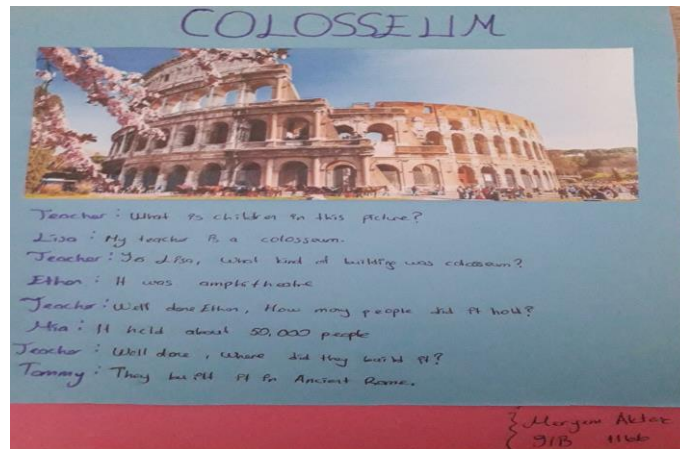 COLOSSEUM
Teacher : What is children in this picture?
Lisa : My teacher is a colosseum.
Teacher : Yes Lisa, What kind of building was colosseum?
Ethan : It was amphitheatre
Teacher : Well done Ethan, How many people did it hold?
Mia : It held about 50,000 people
Teacher : Well done, Where did they build it?
Tommy : They built it in Ancient Rome.
Meryem
9/B 1166